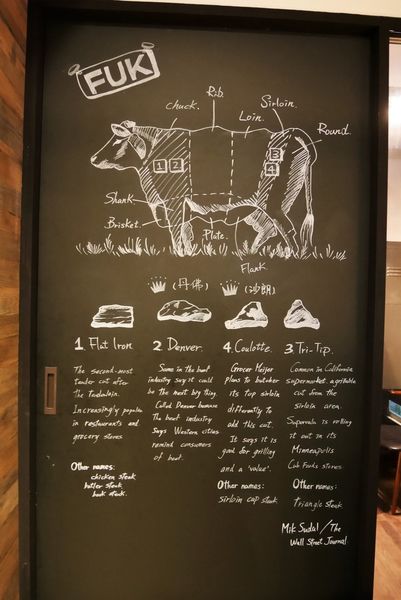 FUK
Rib.
Chuck.
Loin.
Sirloin.
Round.
1 2
3
4
Shank
Brisket.
Plate.
Flank.
(丹佛)
(沙朗)
1. Flat Iron.
The second-most
tender cut after
the tenderloin.
Increasingly popular
in restaurants and
grocery stores
Other names:
chicken steak
butler steak
book steak.
2. Denver.
Some in the beef
industry say it could
be the next big thing.
Called Denver because
The beef industry
says Western cities
remind consumers
of beef.
4. Coulotte.
Grocer Meijer
Plans to butcher
its top sirloin
differently to
add this cut.
It says it is
good for grilling
and a 'value'.
Other names:
sirloin cap steak.
3. Tri-Tip.
Common in California
supermarket.
cut from the
sirloin area.
Supervalu is rolling
it out in its
Minneapolis
Cub Foods stores
Other names:
triangle steak.
Mik Sudal / The
Wall Street Journal